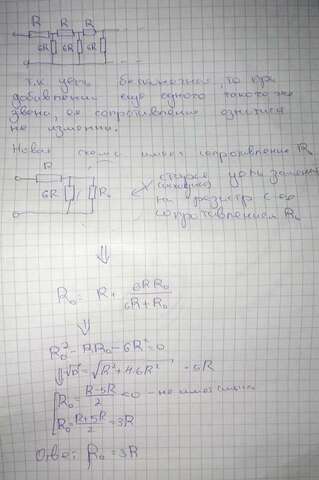 R R R
6R 6R 6R
Т.к цепь бесконечная, то при
добавлении еще одного такого же
звена, ее сопротивление останется
не изменны.
Новая схема имеет сопротивление R₀
R
6R R₀
старую цепь замени
на резистр с
сопротивлением R₀
⇓
R₀ = R + 6RR₀/(6R+R₀)
⇓
R₀² - RR₀ - 6R² = 0
√D = √(R²+4·6R²) = 5R
R₀ = (R-5R)/2 < 0 - не имеет смысла
R₀ = (R+5R)/2 = 3R
Ответ: R₀ = 3R